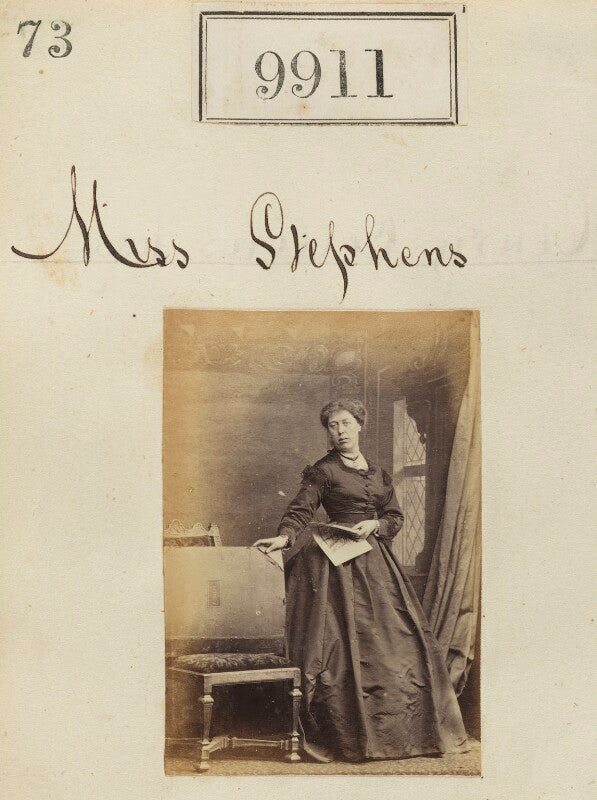 73
9911
Miss Stephens